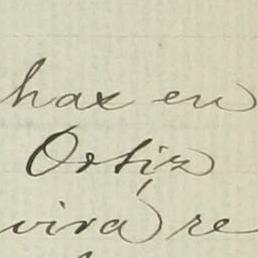 hax en
Ortiz
vivra re